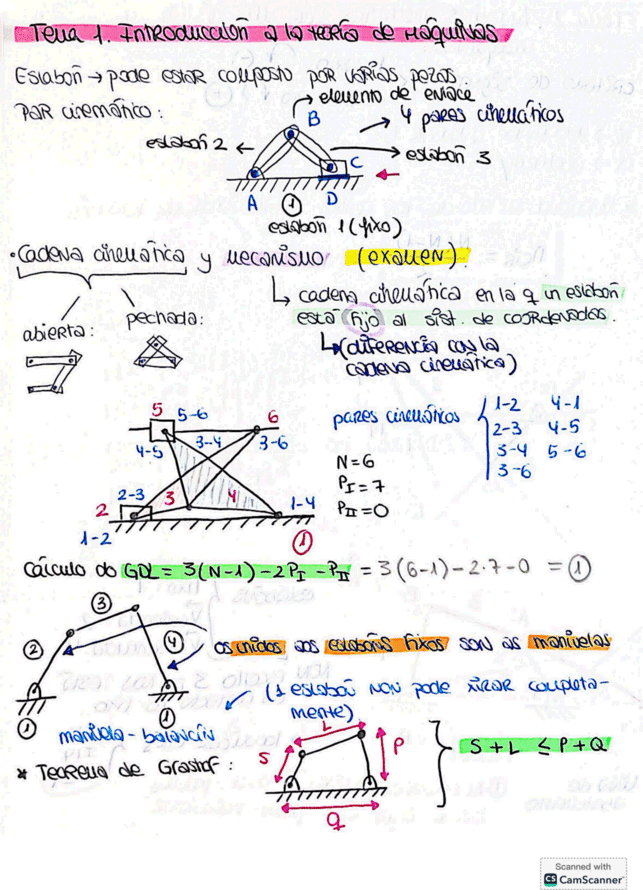 Tema 1. Introducción a la teoría de Máquinas
Eslabón → pode estar composto por varias pezas
Par cinemático:
elemento de enlace
B
4 pares cinemáticos
eslabón 2
eslabón 3
C
A
1
D
eslabón 1 (fixo)
• Cadena cinemática y mecanismo (examen)
cadena cinemática en la q un eslabón
está fijo al sist. de coordenadas.
abierta:
pechada:
(diferencia con la
cadena cinemática)
5 5-6
6
4-5
3-4
3-6
2-3
2
3
4
1-4
1-2
1
pares cinemáticos
1-2 4-1
2-3 4-5
3-4 5-6
3-6
N=6
PI=7
PII=0
Cálculo do GDL = 3(N-1)-2PI-PII = 3(6-1)-2·7-0 = 1
3
2
4
1
1
os unidos aos eslabóns fixos son as manivelas
(1 eslabón non pode xirar completa-
mente)
manivela-balancín
* Teorema de Grashof:
S
L
P
q
S+L ≤ P+Q
Scanned with
CS CamScanner